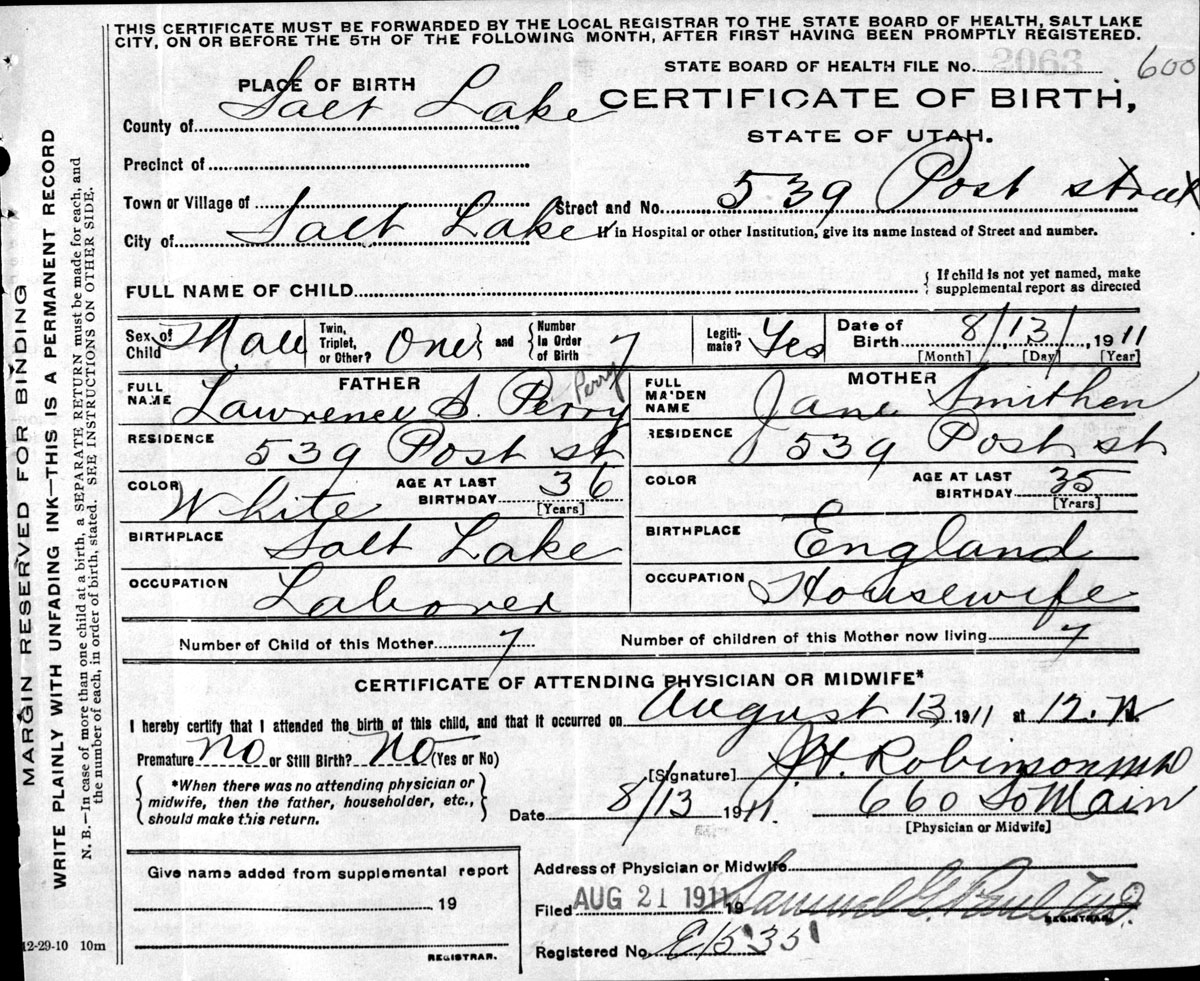 THIS CERTIFICATE MUST BE FORWARDED BY THE LOCAL REGISTRAR TO THE STATE BOARD OF HEALTH, SALT LAKE
CITY, ON OR BEFORE THE 5TH OF THE FOLLOWING MONTH, AFTER FIRST HAVING BEEN PROMPTLY REGISTERED.
STATE BOARD OF HEALTH FILE NO. 2063 600
PLACE OF BIRTH
CERTIFICATE OF BIRTH,
County of Salt Lake
STATE OF UTAH.
Precinct of
Town or Village of
Street and No. 539 Post street
City of Salt Lake
If in Hospital or other Institution, give its name instead of Street and number.
FULL NAME OF CHILD
{ If child is not yet named, make
supplemental report as directed
Sex of Child Male Twin, Triplet, or Other? One } and { Number in Order of Birth 7 Legiti-mate? Yes Date of Birth 8/13/1911
[Month] [Day] [Year]
FATHER
MOTHER
FULL NAME Lawrence S. Perry Perry
FULL MAIDEN NAME Jane Smithen
RESIDENCE 539 Post st
RESIDENCE 539 Post st
COLOR White AGE AT LAST BIRTHDAY 36 [Years]
COLOR AGE AT LAST BIRTHDAY 35 [Years]
BIRTHPLACE Salt Lake
BIRTHPLACE England
OCCUPATION Laborer
OCCUPATION Housewife
Number of Child of this Mother 7 Number of children of this Mother now living 7
CERTIFICATE OF ATTENDING PHYSICIAN OR MIDWIFE*
I hereby certify that I attended the birth of this child, and that it occurred on August 13 1911 at 12.
Premature no or Still Birth? No (Yes or No)
{ *When there was no attending physician or
midwife, then the father, householder, etc.,
should make this return. }
[Signature] Robinson MD
Date 8/13 1911. 660 So Main
[Physician or Midwife]
Give name added from supplemental report
19
REGISTRAR.
Address of Physician or Midwife
Filed AUG 21 1911 19 Samuel G. Paul
REGISTRAR.
Registered No. E1535
12-29-10 10m
MARGIN RESERVED FOR BINDING
WRITE PLAINLY WITH UNFADING INK—THIS IS A PERMANENT RECORD
N. B.—In case of more than one child at a birth, a SEPARATE RETURN must be made for each, and
the number of each, in order of birth, stated. SEE INSTRUCTIONS ON OTHER SIDE.